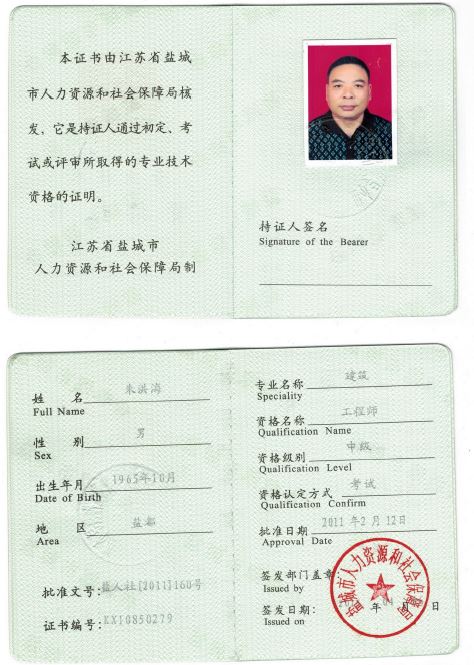 本证书由江苏省盐城
市人力资源和社会保障局核
发，它是持证人通过初定、考
试或评审所取得的专业技术
资格的证明。
江苏省盐城市
人力资源和社会保障局制
持证人签名
Signature of the Bearer
姓 名 朱洪海
Full Name
性 别 男
Sex
出生年月 1965年10月
Date of Birth
地 区 盐都
Area
批准文号: 盐人社[2011]160号
证书编号: KX10850279
专业名称 建筑
Speciality
资格名称 工程师
Qualification Name
资格级别 中级
Qualification Level
资格认定方式 考试
Qualification Confirm
批准日期 2011 年2 月 12日
Approval Date
签发部门盖章
Issued by
签发日期: 年 月 日
Issued on
盐城市人力资源和社会保障局